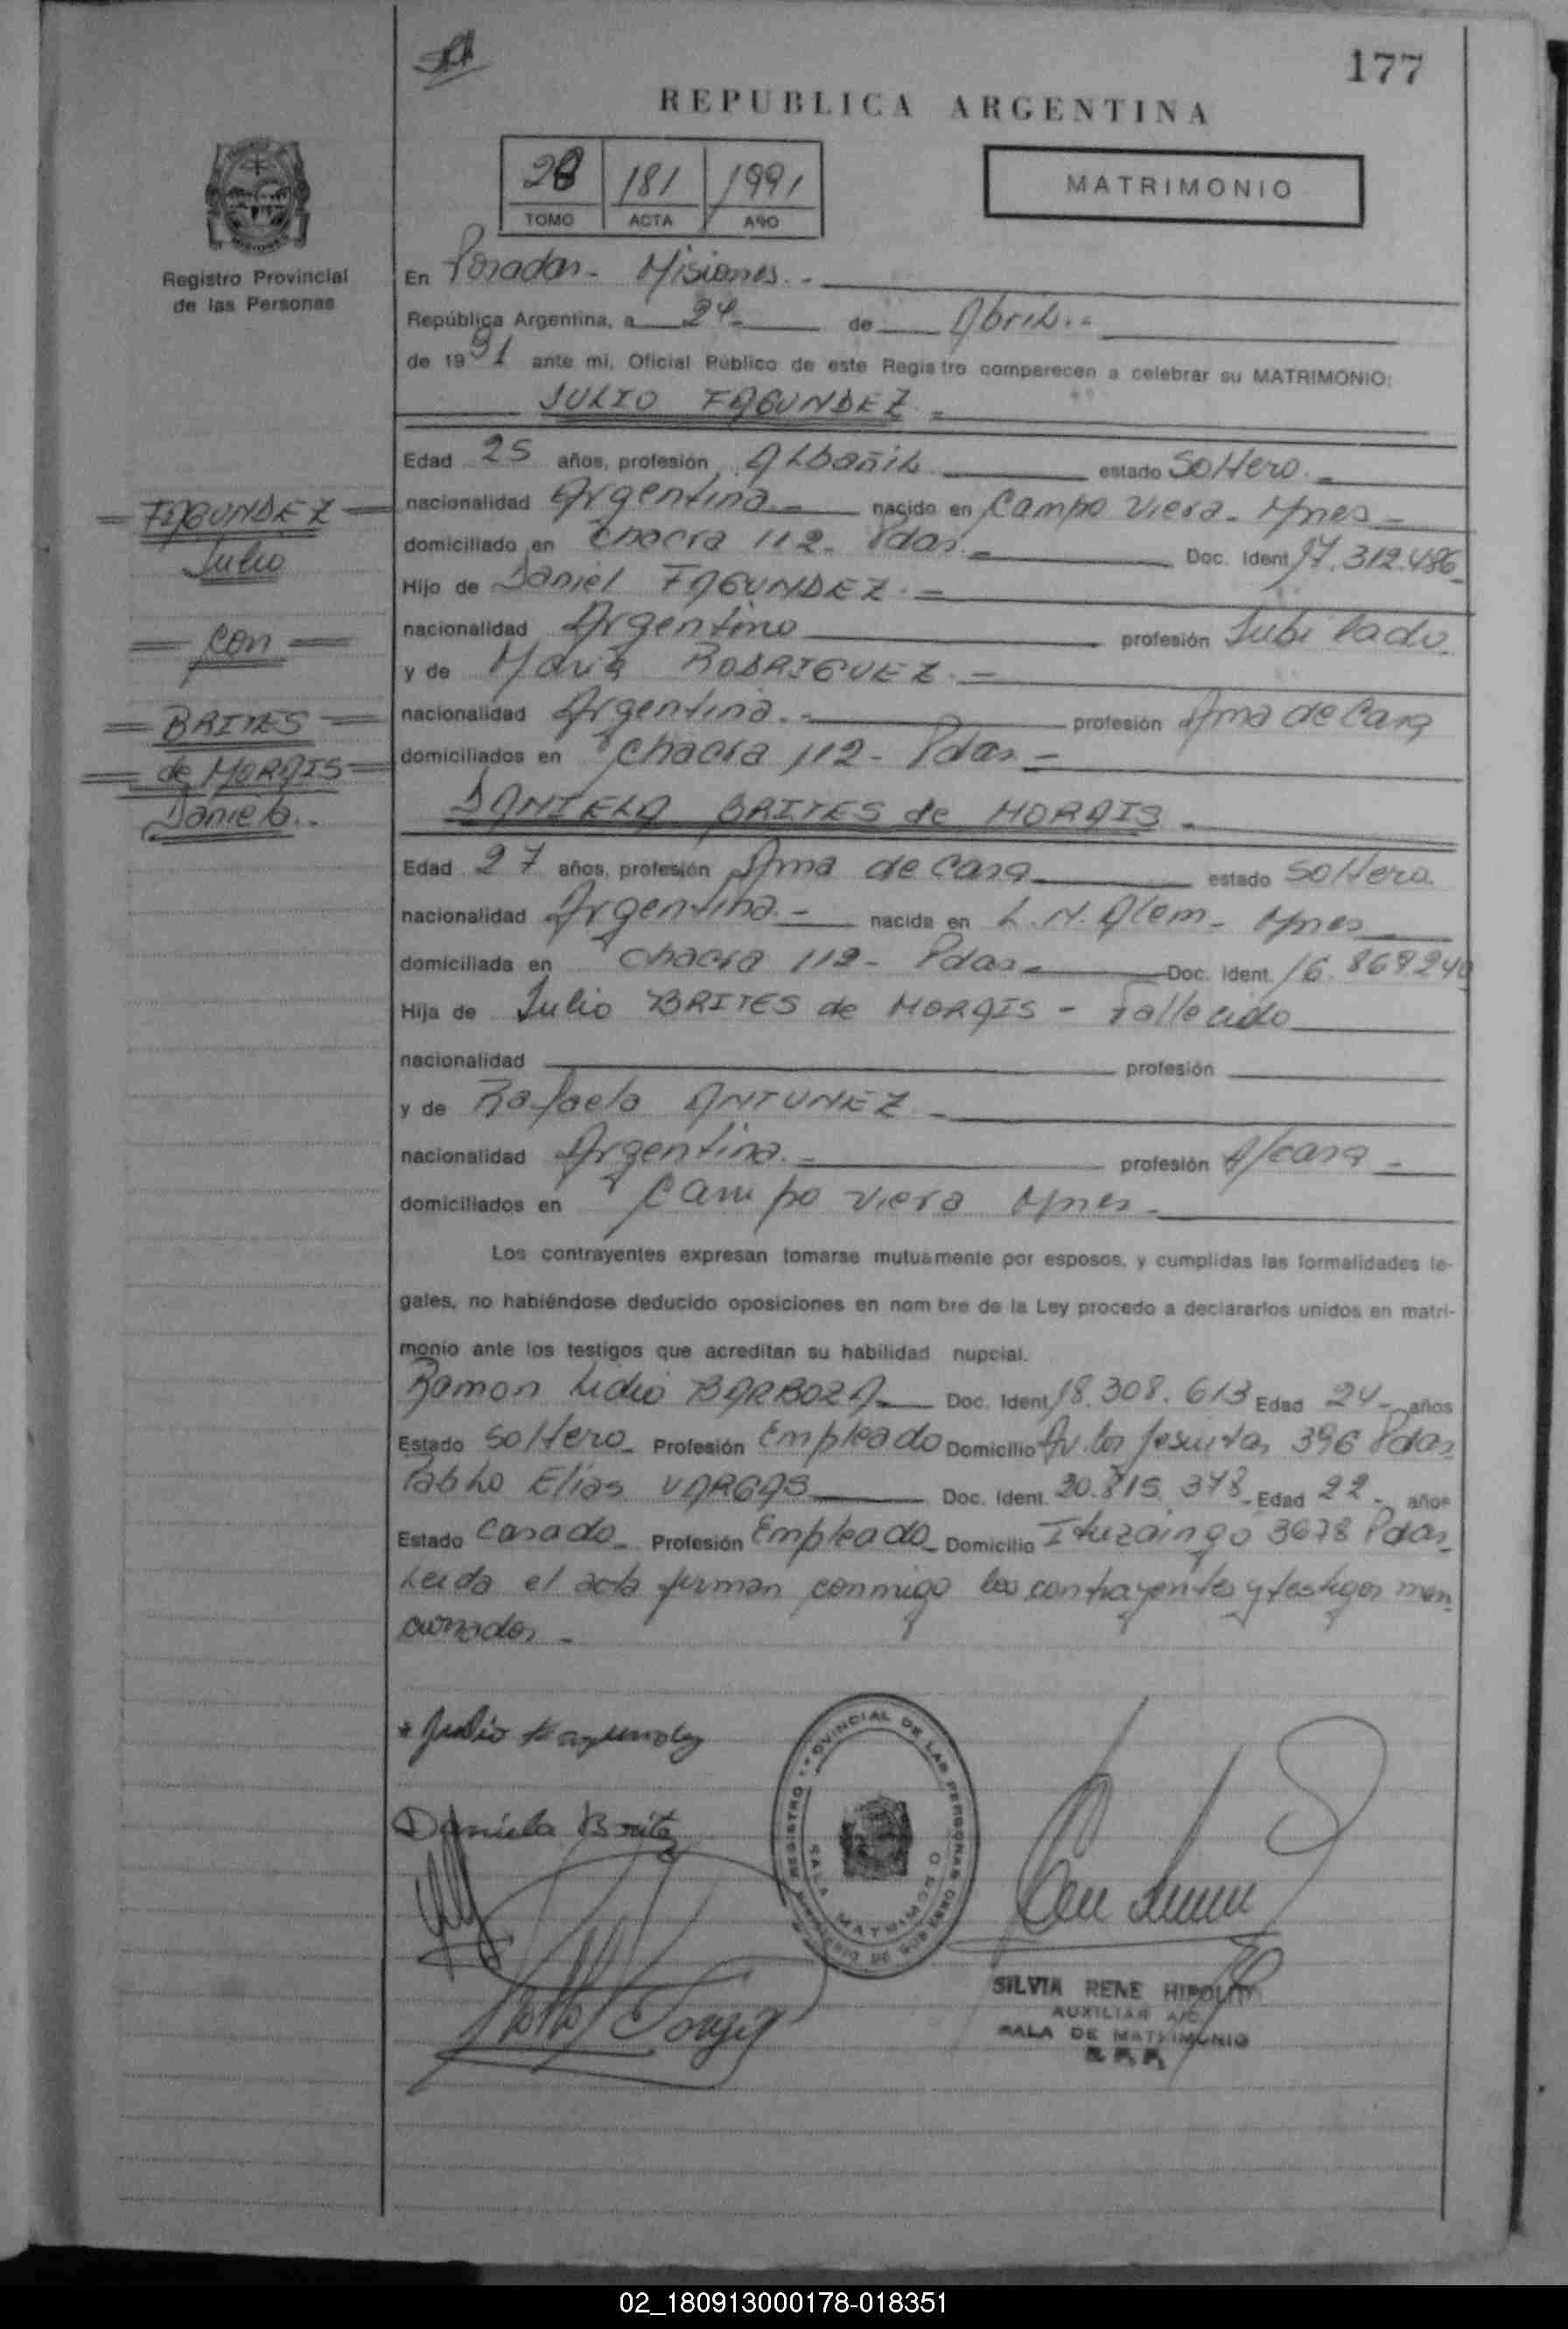 177
REPUBLICA ARGENTINA
28 181 1991
TOMO ACTA AÑO
MATRIMONIO
Registro Provincial
de las Personas
En Posadas - Misiones. -
República Argentina, a 24 - de Abril. -
de 1991 ante mi, Oficial Público de este Registro comparecen a celebrar su MATRIMONIO:
JULIO FAGUNDEZ. =
Edad 25 años, profesión Albañil estado Soltero. -
nacionalidad Argentina - nacido en Campo Viera - Mnes -
domiciliado en Chacra 112 - Pdas. = Doc. Ident 17.312.486 -
Hijo de Daniel FAGUNDEZ. =
nacionalidad Argentino profesión Jubilado -
y de Maria RODRIGUEZ. =
nacionalidad Argentina. - profesión Ama de Casa
domiciliados en Chacra 112 - Pdas =
DANIELA BRITES de MORAIS -
Edad 27 años, profesión Ama de Casa estado Soltera.
nacionalidad Argentina. - nacida en L. N. Alem - Mnes -
domiciliada en Chacra 112 - Pdas - Doc. Ident. 16.869240
Hija de Julio BRITES de MORAIS - Fallecido
nacionalidad profesión
y de Rafaela ANTUNEZ -
nacionalidad Argentina. - profesión A/casa -
domiciliados en Campo Viera Mnes -
= FAGUNDEZ =
Julio
= con =
= BRITES =
= de MORAIS =
Daniela. -
Los contrayentes expresan tomarse mutuamente por esposos, y cumplidas las formalidades le-
gales, no habiéndose deducido oposiciones en nom bre de la Ley procedo a declararlos unidos en matri-
monio ante los testigos que acreditan su habilidad nupcial.
Ramon Lidio BARBOZA - Doc. Ident 18.308.613 Edad 24 - años
Estado Soltero - Profesión Empleado Domicilio Av. los Jesuitas 396 Pdas
Pablo Elias VARGAS Doc. Ident. 20.815.378 - Edad 22 - años
Estado Casado - Profesión Empleado - Domicilio Ituzaingo 3678 Pdas -
Leida el acta firman conmigo los contrayentes y testigos men
cionados -
* Julio Fagundez
Daniela Brites
REGISTRO PROVINCIAL DE LAS PERSONAS
MINISTERIO DE GOBIERNO
SALA MATRIMONIO
SILVIA RENE HIPOLITO
AUXILIAR A/C
SALA DE MATRIMONIO
R. P. P.
02_180913000178-018351